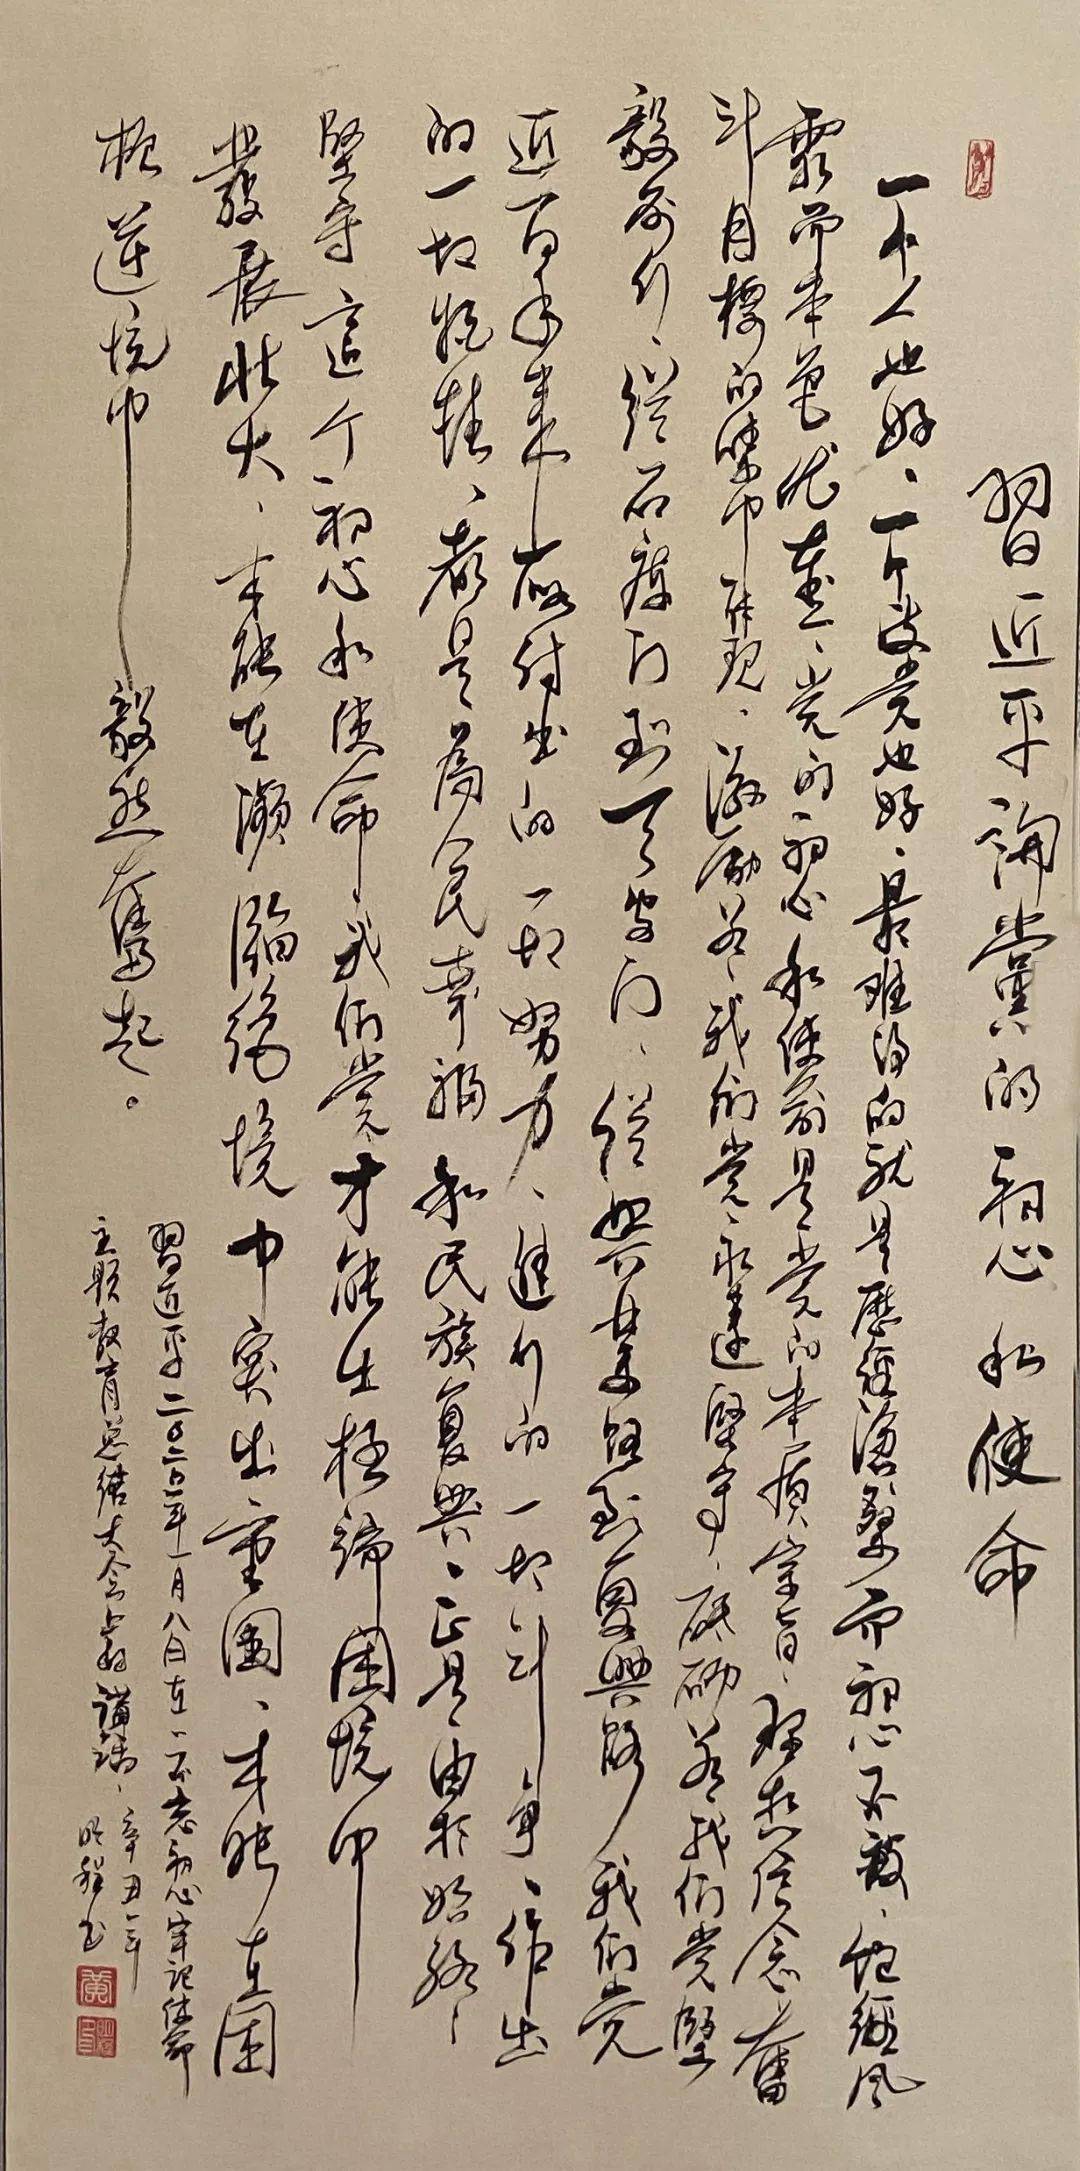 習近平論黨的初心和使命
一个人也好、一个政党也好、最难得的就是歷經滄桑而初心不改、飽經风
霜而本色犹在、党的初心和使命是党的本质宗旨、理想信念奮
斗目標的集中体现、激励着我们党永遠堅守、砥砺着我们党堅
毅前行、從石庫门到天安门、從興業路到复興路我们党
近百年來所付出的一切努力、進行的一切斗争、作出
的一切牺牲、都是為人民幸福和民族复興、正是由於始終
堅守這个初心和使命我们党才能在極端困境中
發展壯大、才能在瀕臨绝境中突出重圍、才能在困
逆境中毅然奮起。
習近平二0二0年一月八日在不忘初心牢記使命
主题教育总结大会上的講話、辛丑年
明程书
黄